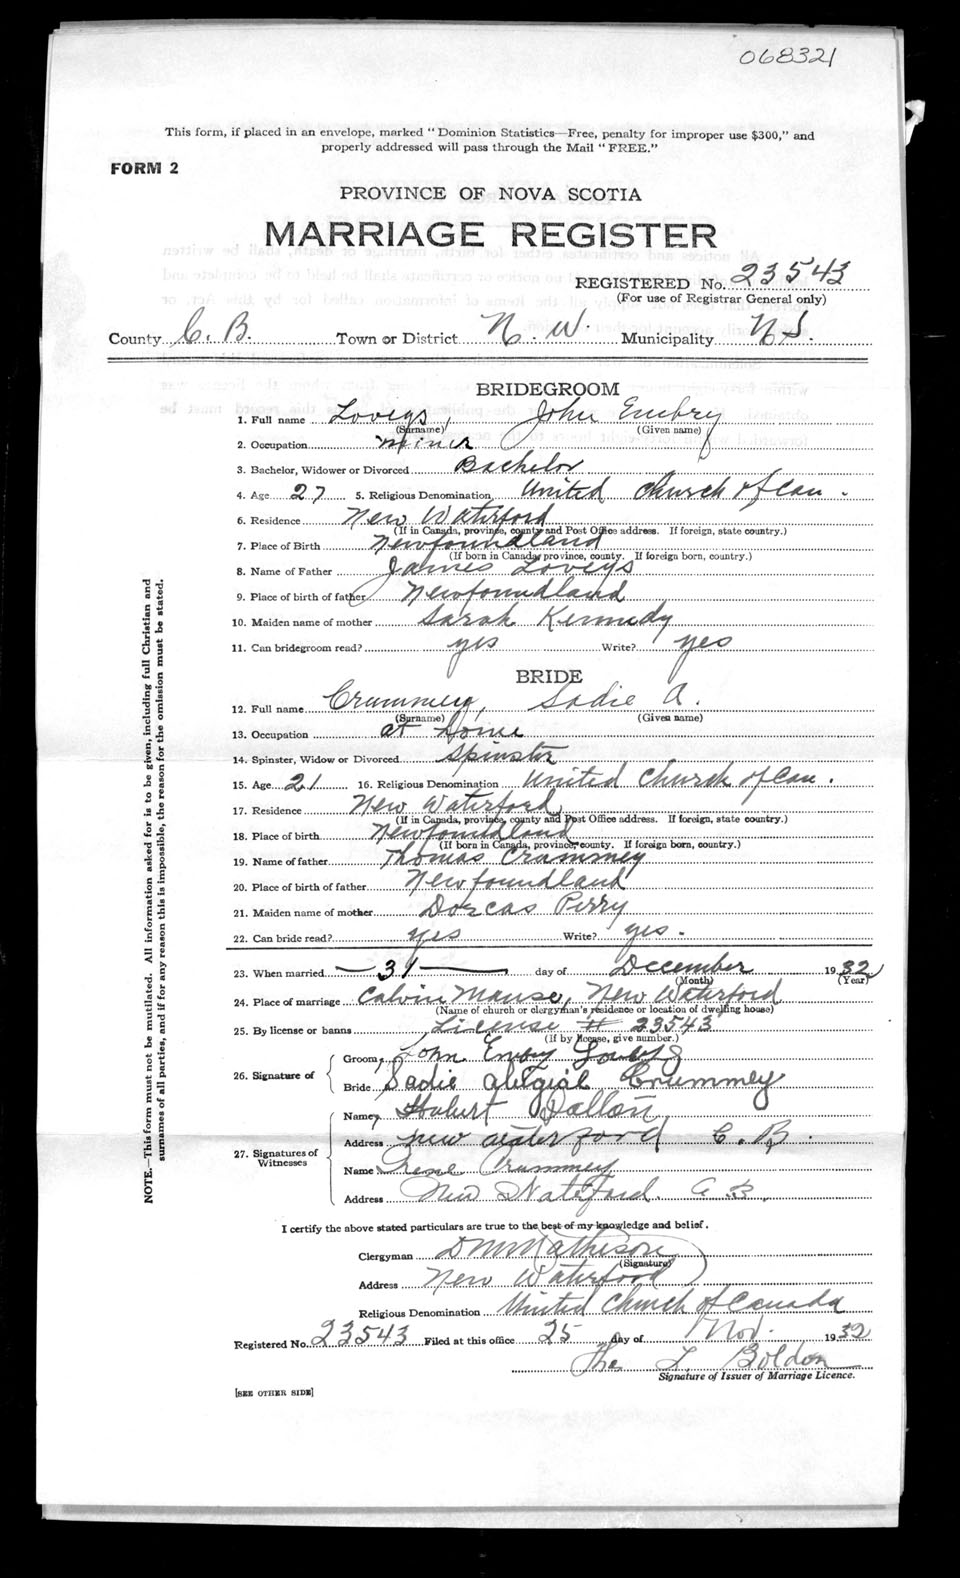 068321
This form, if placed in an envelope, marked "Dominion Statistics—Free, penalty for improper use $300," and
properly addressed will pass through the Mail "FREE."
FORM 2
PROVINCE OF NOVA SCOTIA
MARRIAGE REGISTER
REGISTERED No. 23543
(For use of Registrar General only)
County C. B. Town or District N. W. Municipality N S.
BRIDEGROOM
1. Full name Loveys, John Embry
(Surname) (Given name)
2. Occupation miner
3. Bachelor, Widower or Divorced Bachelor
4. Age 27 5. Religious Denomination United Church of Can.
6. Residence New Waterford
(If in Canada, province, county and Post Office address. If foreign, state country.)
7. Place of Birth Newfoundland
(If born in Canada, province, county. If foreign born, country.)
8. Name of Father James Loveys
9. Place of birth of father Newfoundland
10. Maiden name of mother Sarah Kennedy
11. Can bridegroom read? yes Write? yes
BRIDE
12. Full name Crummey, Sadie A.
(Surname) (Given name)
13. Occupation at home
14. Spinster, Widow or Divorced Spinster
15. Age 21 16. Religious Denomination United Church of Can.
17. Residence New Waterford
(If in Canada, province, county and Post Office address. If foreign, state country.)
18. Place of birth Newfoundland
(If born in Canada, province, county. If foreign born, country.)
19. Name of father Thomas Crummey
20. Place of birth of father Newfoundland
21. Maiden name of mother Dorcas Perry
22. Can bride read? yes Write? yes.
23. When married 31 day of December 1932
(Month) (Year)
24. Place of marriage Calvin Manse, New Waterford
(Name of church or clergyman's residence or location of dwelling house)
25. By license or banns License # 23543
(If by license, give number.)
26. Signature of
Groom, John Loveys
Bride Sadie Crummey
27. Signatures of Witnesses
Name,
Address New Waterford C. B.
Name Crummey
Address New Waterford. C. B.
I certify the above stated particulars are true to the best of my knowledge and belief.
Clergyman D M Mathieson
(Signature)
Address New Waterford
Religious Denomination United Church of Canada
Registered No. 23543 Filed at this office 25 day of Nov. 1932
L. Boldon
Signature of Issuer of Marriage Licence.
[SEE OTHER SIDE]
NOTE.—This form must not be mutilated. All information asked for is to be given, including full Christian and
surnames of all parties, and if for any reason this is impossible, the reason for the omission must be stated.